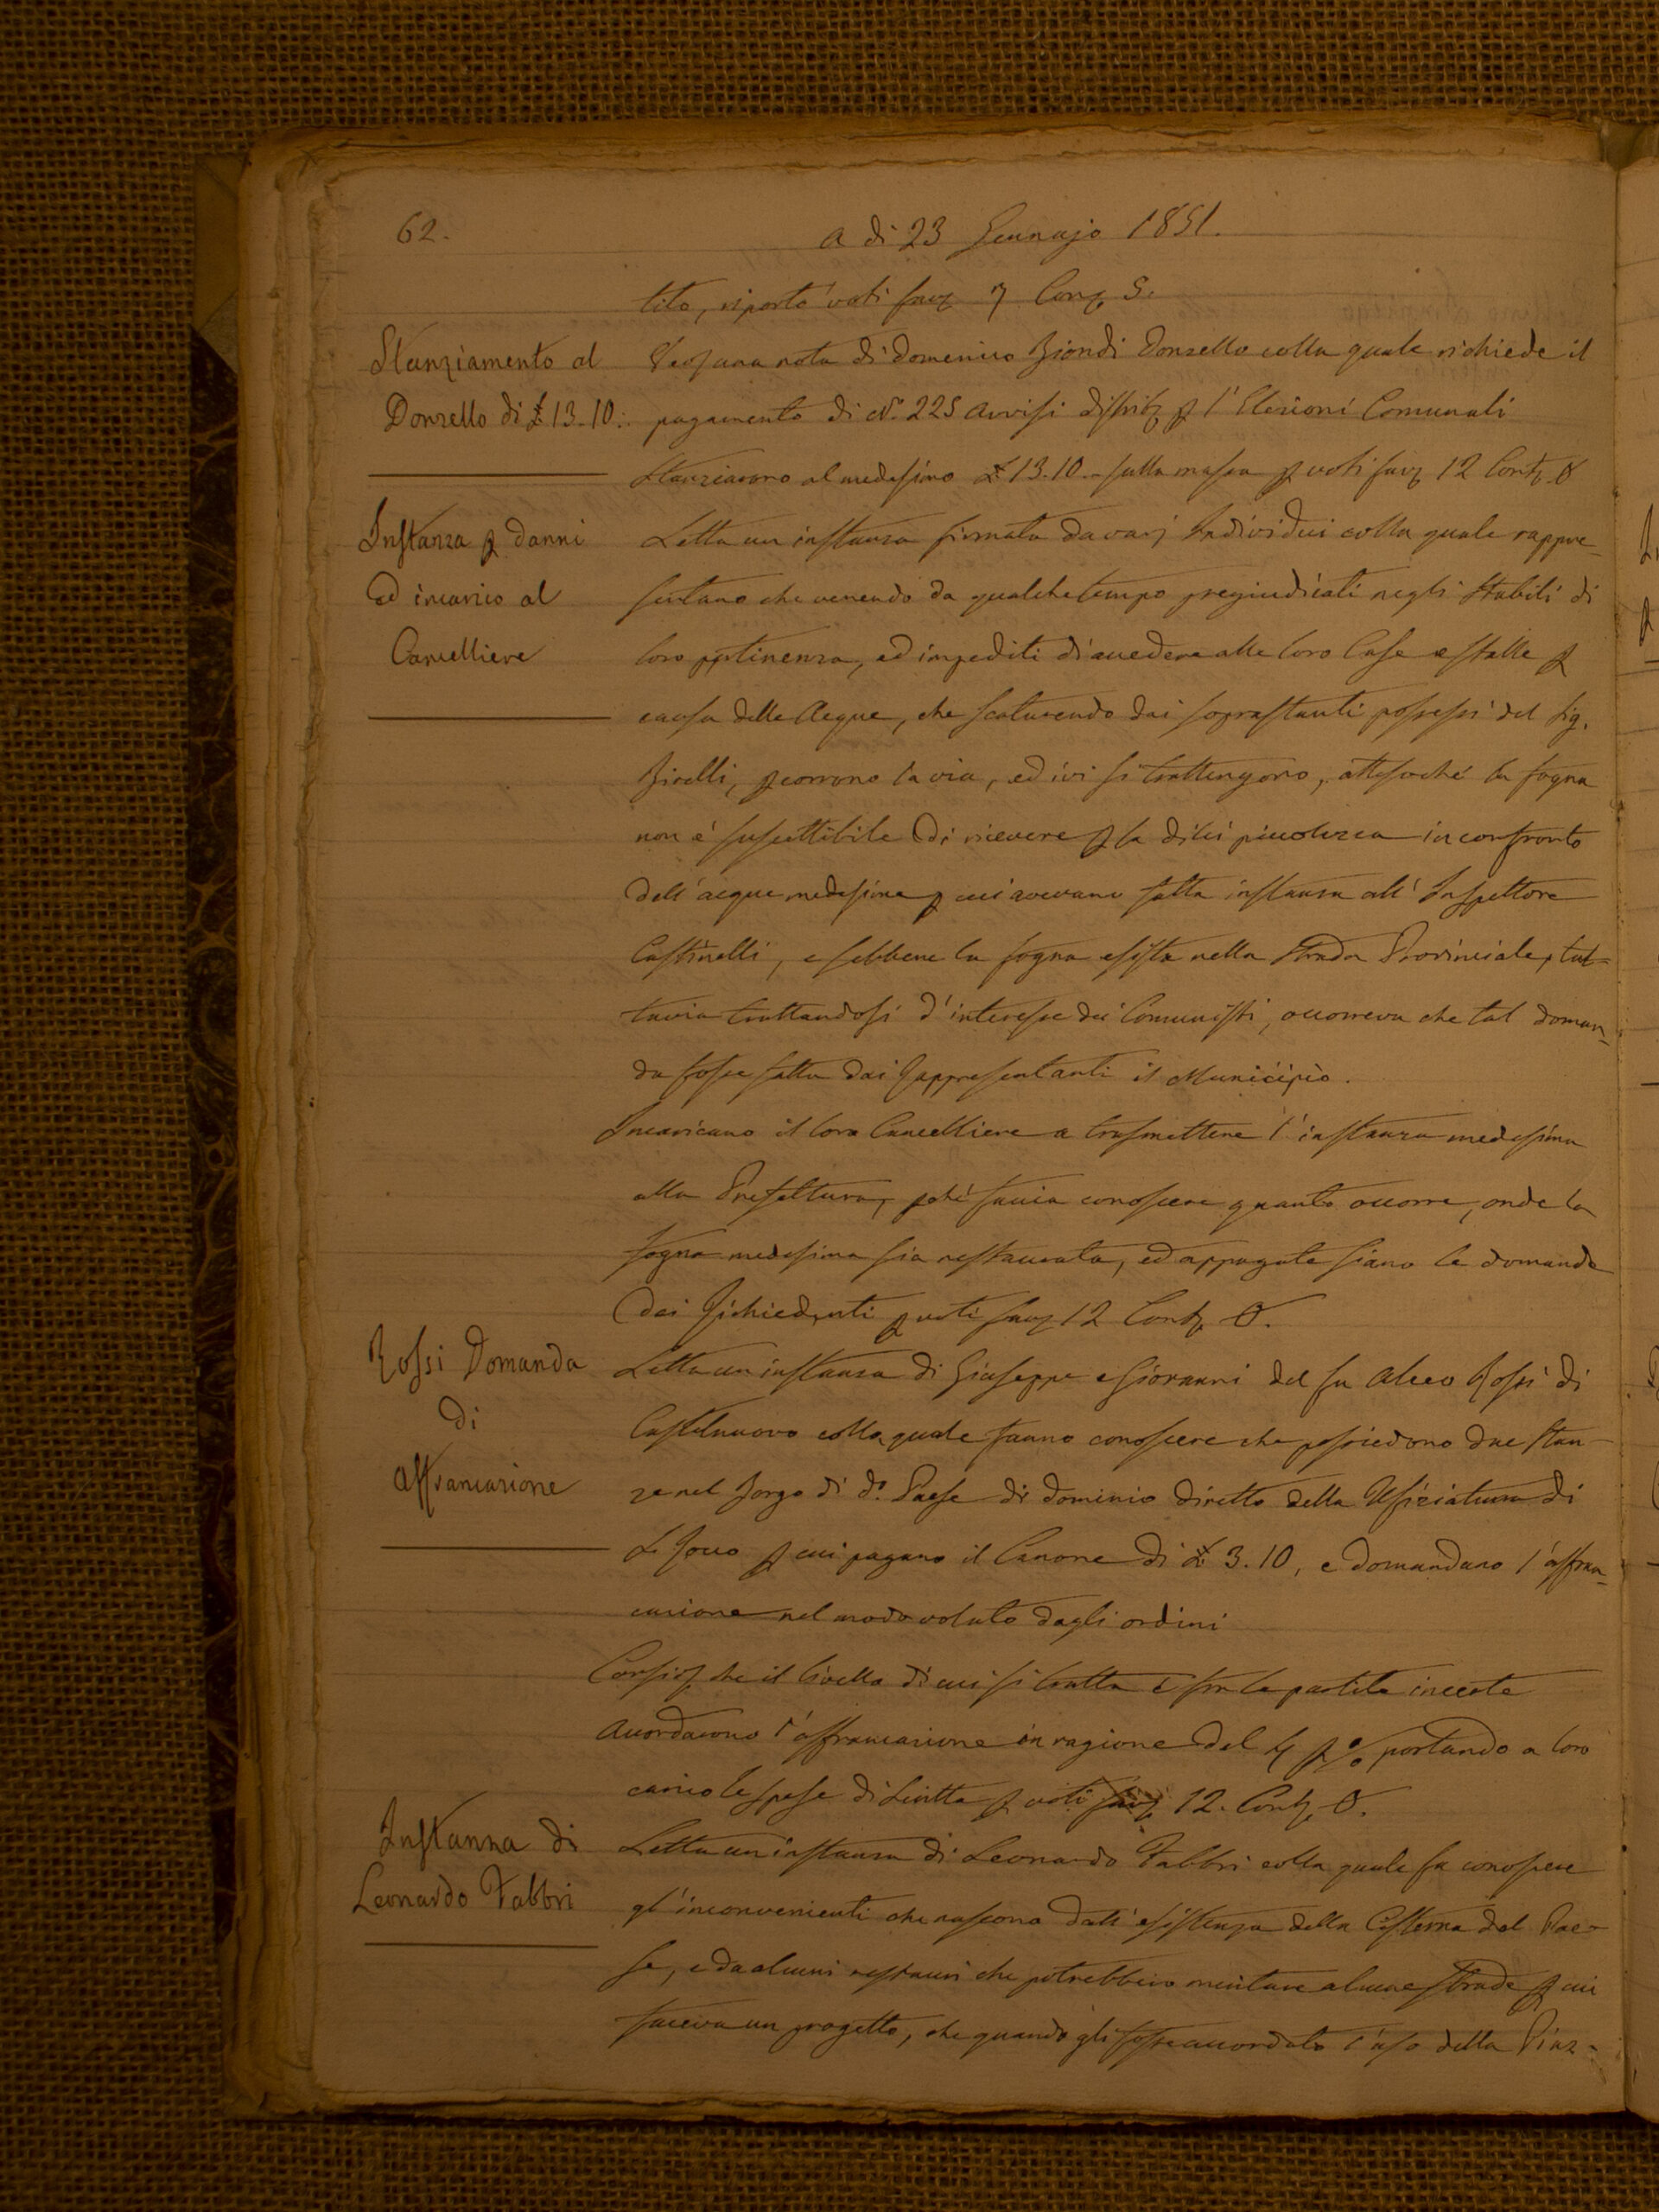 62.
A dì 23 Gennajo 1851.
tito, riportò voti fav. 7 Con. 5.
Stanziamento al
Donzello di £ 13.10:
una nota di Domenico Biondi Donzello colla quale richiede il
pagamento di N.º 225 Avvisi distrib. p l'Elezioni Comunali
Stanziarono al medesimo £ 13.10.- sulla massa p voti fav. 12 Cont. 0
Instanza p danni
ed incarico al
Cancelliere
Letta un instanza firmata da varj Individui colla quale rappre-
sentano che venendo da qualche tempo pregiudicati negli stabili di
loro pertinenza, ed impediti di accedere alle loro Case e stalle p
causa delle Acque, che scaturendo dai soprastanti possessi del Sig.
percorrono la via, ed ivi si trattengono, attesochè la fogna
non è suscettibile di ricevere p la di lei piccolezza in confronto
dell'acque medesime p cui avevano fatta instanza all'Inspettore
Castinelli, e sebbene la fogna esista nella Strada Provinciale, tut=
tavia trattandosi d'interesse dei Comunisti, occorreva che tal doman-
da fosse fatta dai Rappresentanti il Municipio.
Incaricano il loro Cancelliere a trasmettere l'instanza medesima
alla Prefettura, pchè faccia conoscere quanto occorre, onde la
fogna medesima sia restaurata, ed appagate siano le domande
dei Richiedenti p voti fav. 12 Cont. 0.
Rossi Domanda
di
Affrancazione
Letta un instanza di Giuseppe e Giovanni del fu Alceo Rossi di
Castelnuovo colla quale fanno conoscere che possiedono due stan-
ze nel Borgo di d.º Paese di dominio diretto della Ufiziatura di
S. Rocco p cui pagano il Canone di £ 3.10, e domandano l'affran-
cazione nel modo voluto dagli ordini
Consid. che il livello di cui si tratta è fra le partite incerte
Accordarono l'affrancazione in ragione del 4 p % portando a loro
carico le spese di scritta p voti fav. 12. Cont. 0.
Instanza di
Leonardo Fabbri
Letta un instanza di Leonardo Fabbri colla quale fa conoscere
gl'inconvenienti che nascono dall'esistenza della Cisterna del Pae-
se, e da alcuni restauri che potrebbero meritare alcune strade p cui
faceva un progetto, che quando gli fosse accordato l'uso della Piaz-